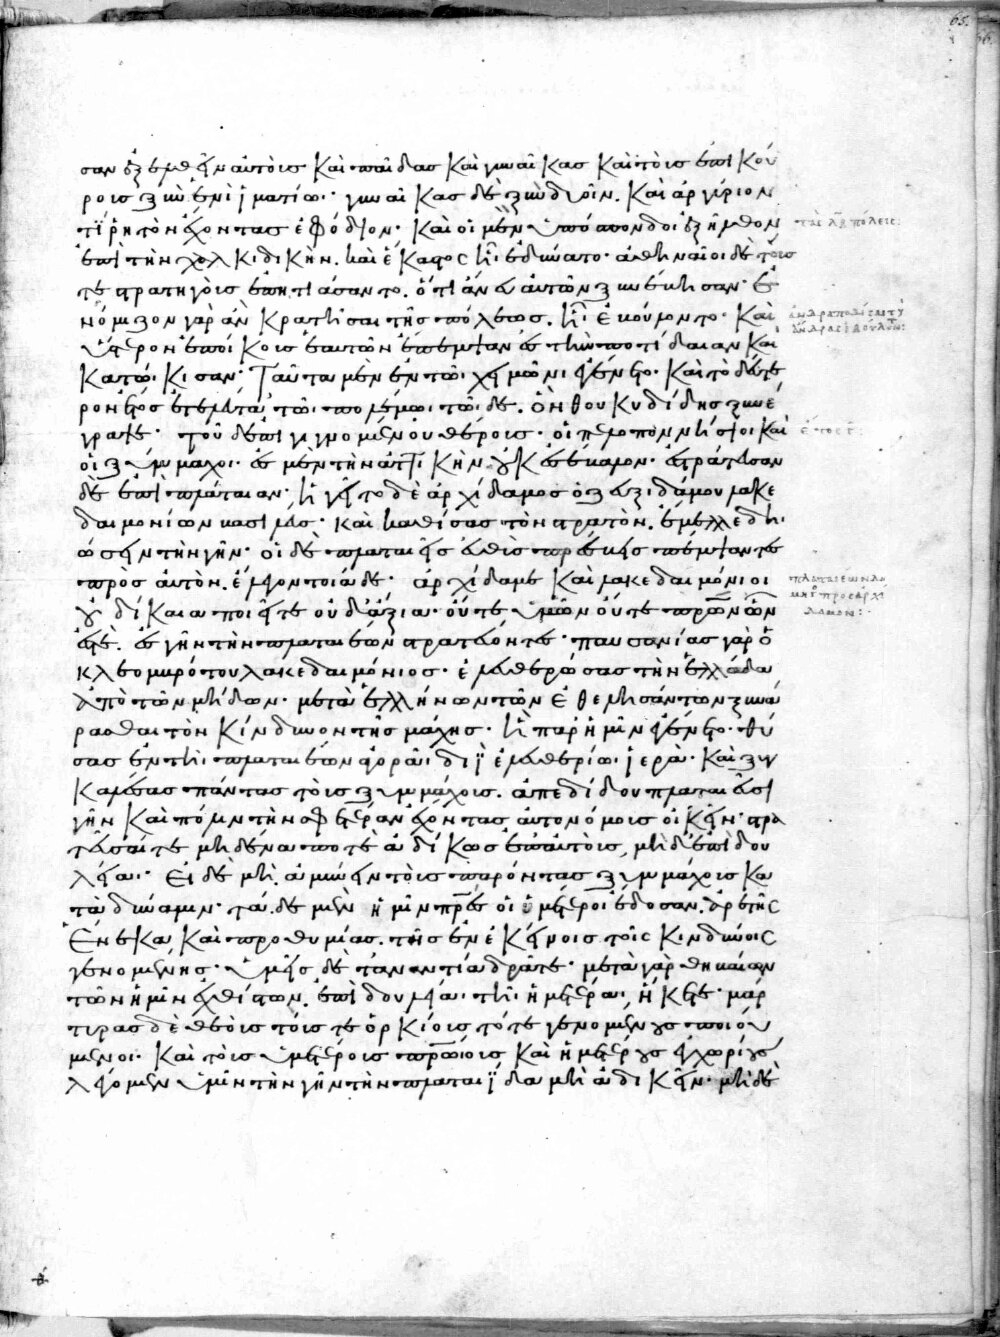 65.
σαν ἐξελθεῖν αὐτοὺς καὶ παῖδας καὶ γυναῖκας καὶ τοὺς ἐπικού
ρους ξὺν ἑνὶ ἱματίω· γυναῖκας δὲ ξὺν δυοῖν. καὶ ἀργύριον
τί ῥητὸν ἔχοντας ἐφόδιον· καὶ οἱ μὲν ὑπόσπονδοι ἐξῆλθον
ἐπὶ τὴν χαλκιδικὴν. καὶ ἕκαστος ἧ ἐδύνατο· ἀθηναῖοι δὲ τούς
τε στρατηγοὺς ἐπητιάσαντο. ὅτι ἄνευ αὐτῶν ξυνέβησαν· ἐ
νόμιζον γὰρ ἂν κρατῆσαι τῆς πόλεως. ἧ ἐβούλοντο· καὶ
ὕστερον ἐποίκους ἑαυτῶν ἔπεμψαν ἐς τὴν ποτίδαιαν καὶ
κατώκισαν· Ταῦτα μὲν ἐν τῶ χειμῶνι ἐγένετο· καὶ τὸ δεύτε
ρον ἔτος ἐτελεύτα τῶ πολέμω τῶδε. ὃν θουκυδίδης ξυνέ
γραψε· τοῦ δ' ἐπιγιγνομένου θέρους· οἱ πελοποννήσιοι καὶ
οἱ ξύμμαχοι· ἐς μὲν τὴν ἀττικὴν οὐκ ἐσέβαλον· ἐστράτευσαν
δὲ ἐπὶ πλάταιαν· ἡγεῖτο δὲ ἀρχίδαμος ὁ ζευξιδάμου λακε
δαιμονίων βασιλεύς· καὶ καθίσας τὸν στρατὸν. ἔμελλε δη
ώσειν τὴν γῆν· οἱ δὲ πλαταιεῖς εὐθὺς πρέσβεις πέμψαντες
πρὸς αὐτὸν. ἔλεγον τοιάδε· ἀρχίδαμε καὶ λακεδαιμόνιοι
οὐ δίκαια ποιεῖτε οὐδ' ἄξια· οὔτε ὑμῶν οὔτε πατέρων ὧν
ἐστε. ἐς γῆν τὴν πλαταιέων στρατεύοντες· παυσανίας γὰρ ὁ
κλεομβρότου λακεδαιμόνιος· ἐλευθερώσας τὴν ἑλλάδα
ἀπὸ τῶν μήδων· μετὰ ἑλλήνων τῶν ἐθελησάντων ξυνά
ρασθαι τὸν κίνδυνον τῆς μάχης· ἣ παρ' ἡμῖν ἐγένετο· θύ
σας ἐν τῆ πλαταιέων ἀγορᾶ· διῒ ἐλευθερίω ἱερὰ· καὶ ξυγ
καλέσας πάντας τοὺς ξυμμάχους. ἀπεδίδου πλαταιεῦσι
γῆν καὶ πόλιν τὴν σφετέραν ἔχοντας αὐτονόμους οἰκεῖν· στρα
τεῦσαί τε μηδένα ποτὲ ἀδίκως ἐπ' αὐτοὺς, μηδ' ἐπὶ δου
λεία· Εἰ δὲ μὴ ἀμύνειν τοὺς παρόντας ξυμμάχους κα
τὰ δύναμιν· τάδε μὲν ἡμῖν πατέρες οἱ ὑμέτεροι ἔδοσαν. ἀρετῆς
ἕνεκα καὶ προθυμίας. τῆς ἐν ἐκείνοις τοῖς κινδύνοις
γενομένης· ὑμεῖς δὲ τἀναντία δρᾶτε· μετὰ γὰρ θηβαίων
τῶν ἡμῖν ἐχθίστων. ἐπὶ δουλεία τῆ ἡμετέρα, ἥκετε· μάρ
τυρας δὲ θεοὺς τούς τε ὁρκίους τότε γενομένους ποιού
μενοι· καὶ τοὺς ὑμετέρους πατρώιους καὶ ἡμετέρους ἐγχωρίους
λέγομεν ὑμῖν τὴν γῆν τὴν πλαταιΐδα μὴ ἀδικεῖν· μηδὲ
ἔτος
πλαταιέων
πρὸς ἀρχί
δαμον: